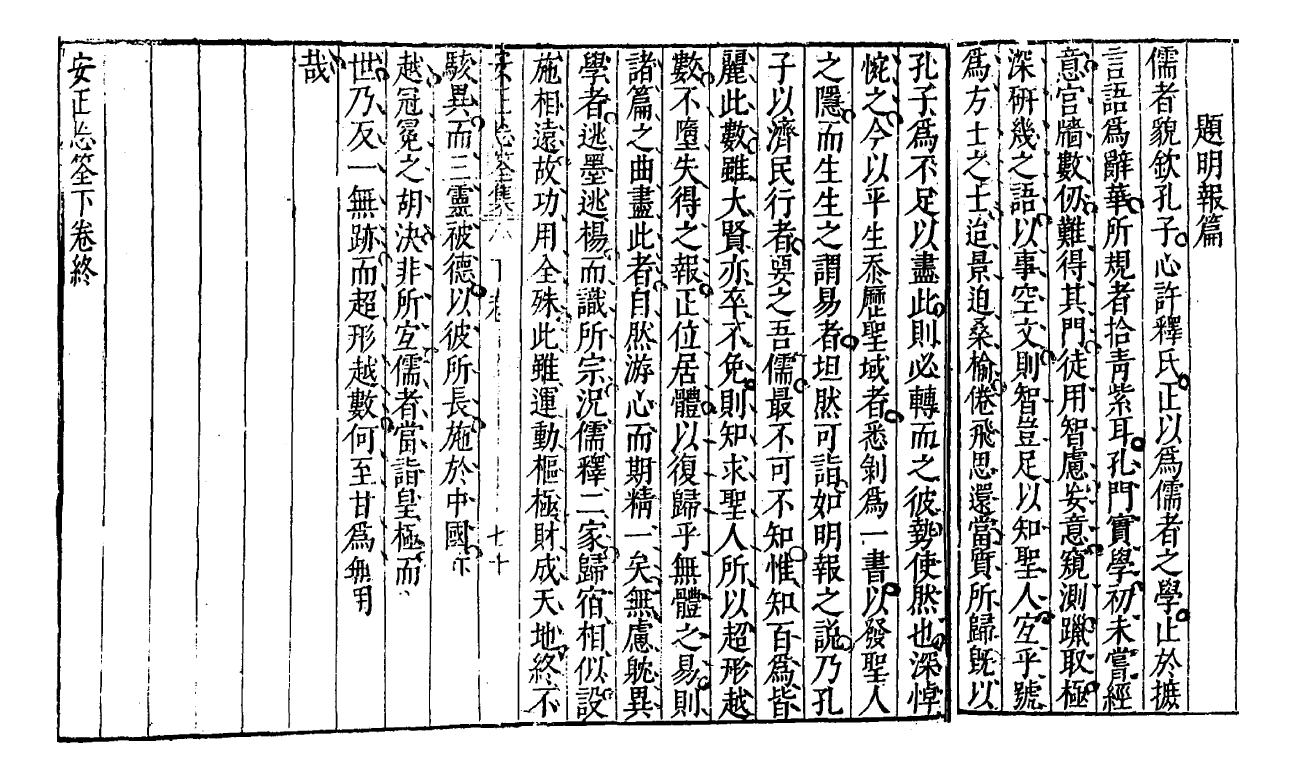 題明報篇
儒者貌欽孔子心許釋氏正以爲儒者之學止於摭
言語爲辭華所規者拾靑紫耳孔門實學初未嘗經
意宮牆數仭難得其門徒用智慮妄意窺測躐取極
深硏幾之語以事空文則智豈足以知聖人宜乎號
爲方士之士迨景迫桑榆倦飛思還當質所歸旣以
孔子爲不足以盡此則必轉而之彼勢使然也深悼
惋之今以平生忝歷聖域者悉剝爲一書以發聖人
之隱而生生之謂易者坦然可詣如明報之説乃孔
子以濟民行者要之吾儒最不可不知惟知百爲皆
麗此數雖大賢亦卒不免則知求聖人所以超形越
數不墮失得之報正位居體以復歸乎無體之易則
諸篇之曲盡此者自然游心而期精一矣無慮躭異
學者逃墨逃楊而識所宗況儒釋二家歸宿相似設
施相遠故功用全殊此雖運動樞極財成天地終不
安正忘筌集 下卷 七十
駭異而三靈被德以彼所長施於中國
越冠冕之胡決非所宜儒者當詣皇極而
世乃反一無跡而超形越數何至甘爲無用
哉
安正忘筌下卷終